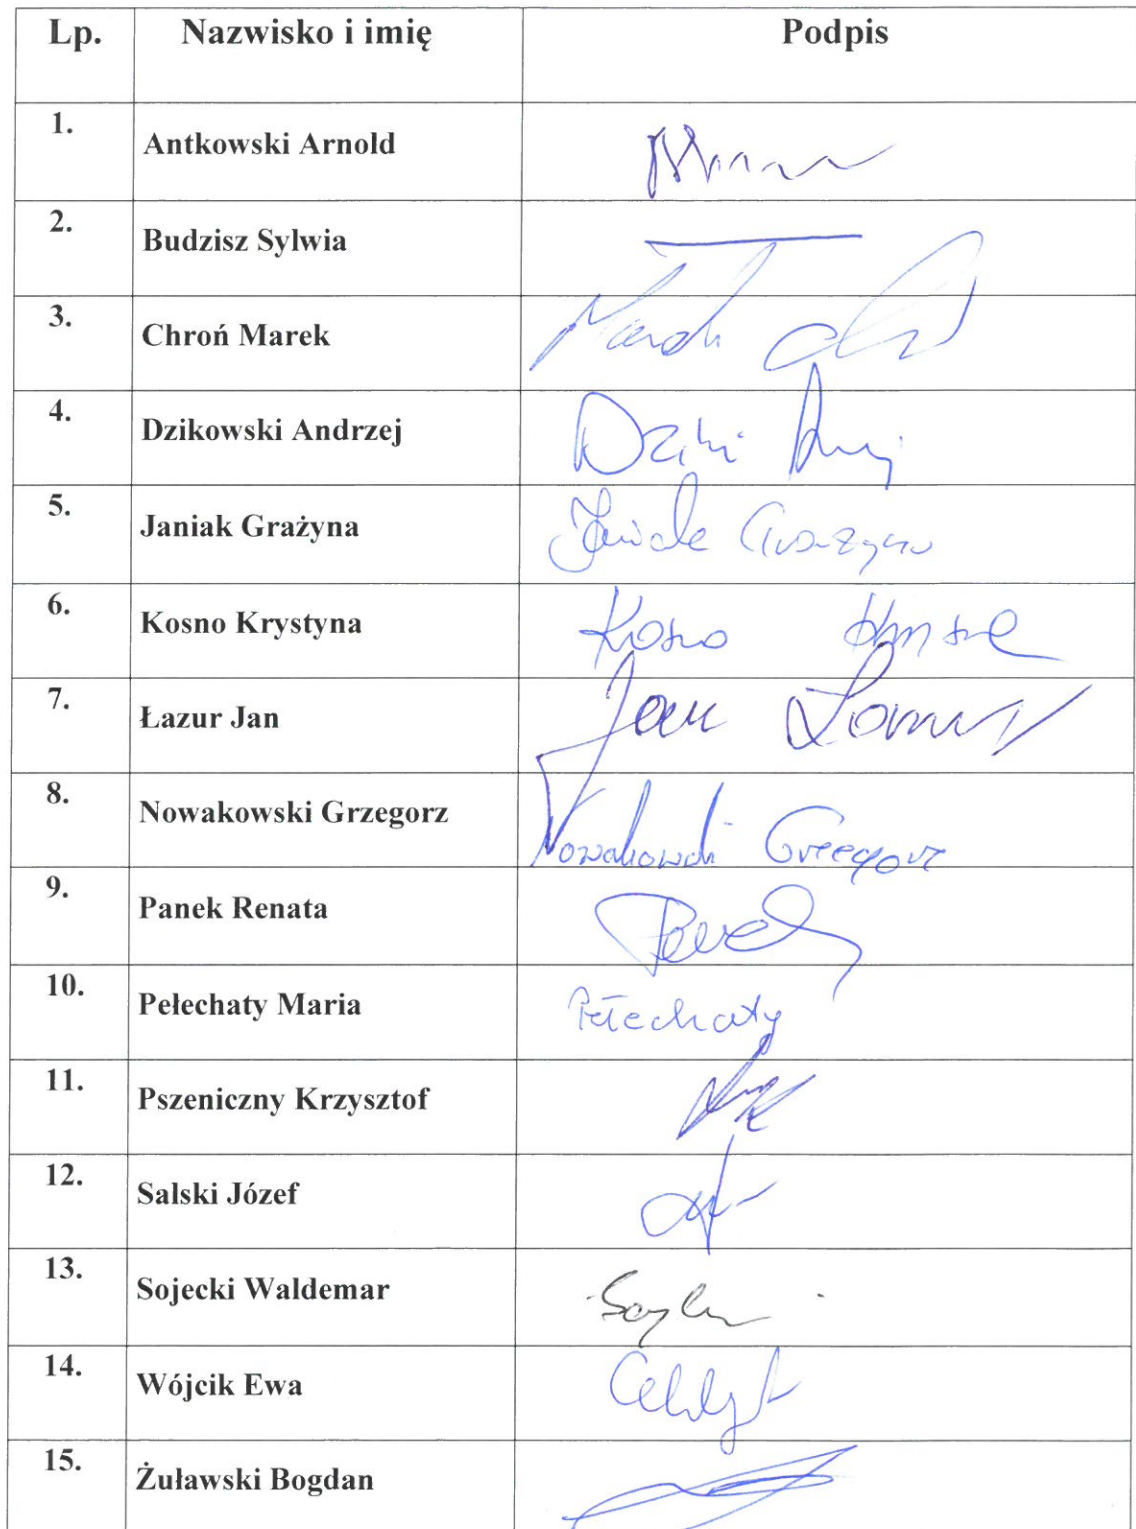 Lp. Nazwisko i imię Podpis
1. Antkowski Arnold
2. Budzisz Sylwia
3. Chroń Marek Marek
4. Dzikowski Andrzej
5. Janiak Grażyna Janiak Grażyna
6. Kosno Krystyna Kosno
7. Łazur Jan Jan Łazur
8. Nowakowski Grzegorz Nowakowski Grzegorz
9. Panek Renata Panek
10. Pełechaty Maria Pełechaty
11. Pszeniczny Krzysztof
12. Salski Józef
13. Sojecki Waldemar
14. Wójcik Ewa
15. Żuławski Bogdan